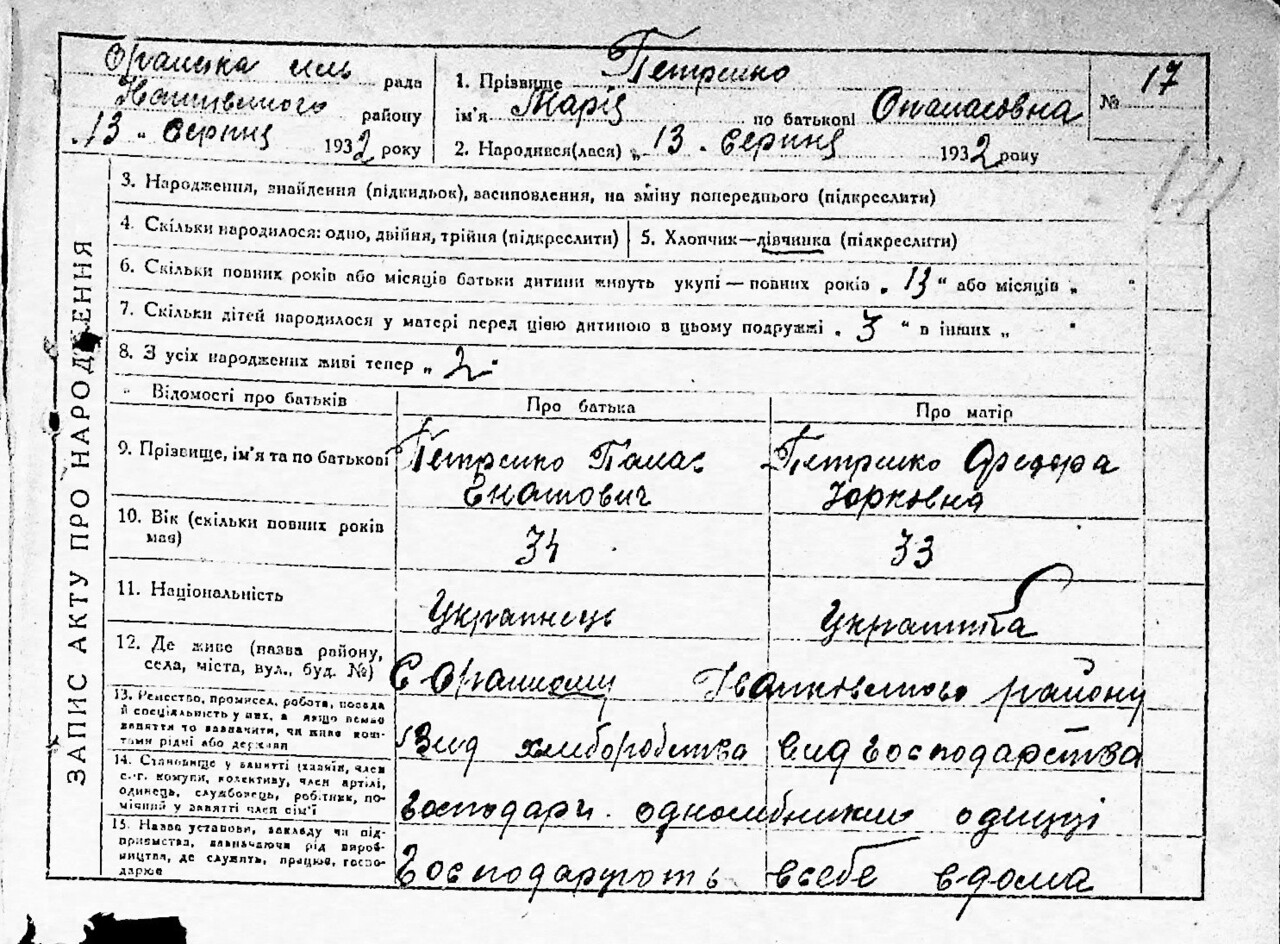 Оранська сіль рада
Іванківського району
"13" Серпня 1932 року
1. Прізвище Петренко
ім'я Марія по батькові Опанасовна
2. Народився(лася) "13" Серпня 1932 року
№ 17
171
ЗАПИС АКТУ ПРО НАРОДЖЕННЯ
3. Народження, знайдення (підкидьок), всиновлення, на зміну попереднього (підкреслити)
4. Скільки народилося: одно, двійня, трійня (підкреслити)
5. Хлопчик—дівчинка (підкреслити)
6. Скільки повних років або місяців батьки дитини живуть укупі—повних років "13" або місяців " "
7. Скільки дітей народилося у матері перед цією дитиною в цьому подружжі "3" в інших " "
8. З усіх народжених живі тепер "2"
Відомості про батьків
Про батька
Про матір
9. Прізвище, ім'я та по батькові
Петренко Панас
Єнатович
Петренко Федора
Юрковна
10. Вік (скільки повних років
має)
34
33
11. Національність
Українець
Українка
12. Де живе (назва району,
села, міста, вул., буд. №)
С Оранному Іванковського району
13. Ремество, промисел, робота, посада
й спеціяльність у них, а якщо немає
заняття то зазначити, чи живе кош-
тами рідні або держави
Вид хлиборобства вид господарства
14. Становище у занятті (хазяїн, член
с.-г. комуни, колективу, член артілі,
одинець, службовець, робітник, по-
мічний у занятті член сім'ї
Господарі одноосібники одинці
15. Назва установи, закладу чи під-
приємства, зазначаючи рід вироб-
ництва, де служать, працює, госпо-
дарює
Господарують всебе вдома